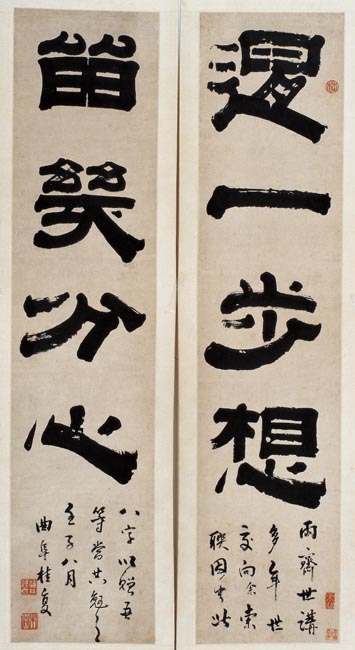 退一步想
雨齋世講
多年世
交向余索
聯因書此
留幾分心
八字以贈吾
等當共勉之
壬子八月
曲阜桂复